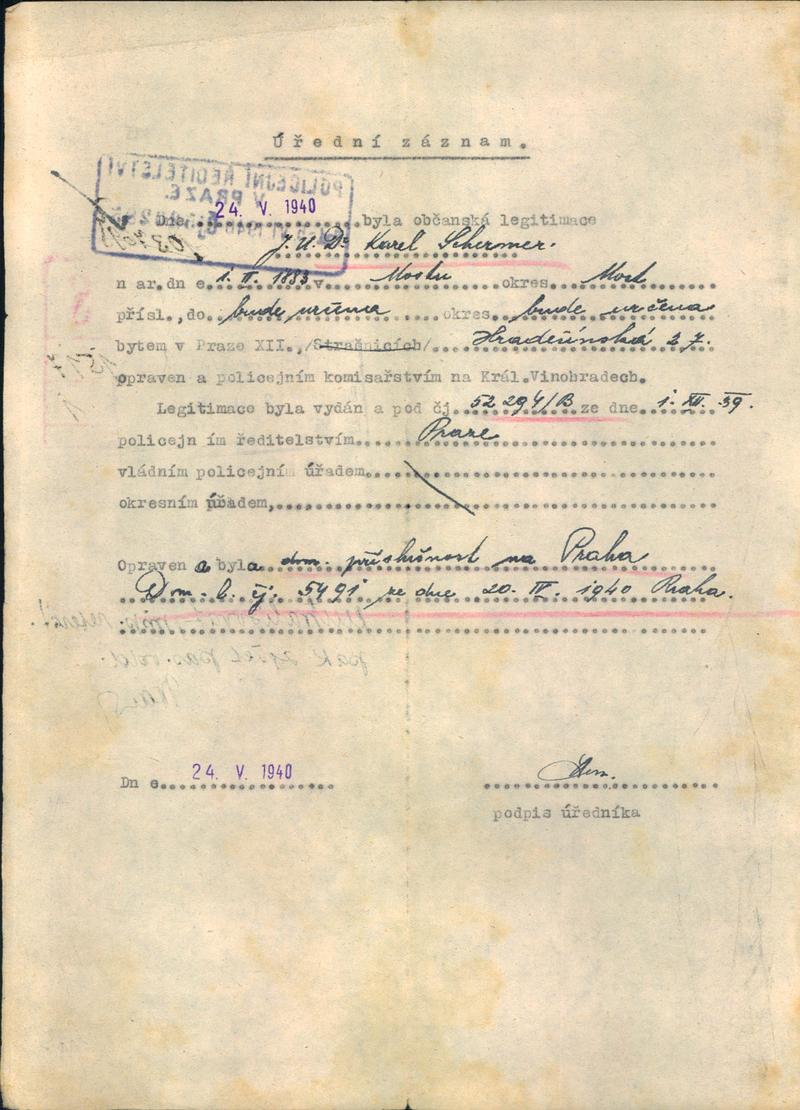 Úřední záznam.
POLICEJNÍ ŘEDITELSTVÍ
V PRAZE.
Dne 24. V. 1940 byla občanská legitimace
J. U. Dr Karel Schermer.
n ar.dn e 1. II. 1883 v Mostu okres Most
přísl. do bude určena okres bude určena
bytem v Praze XII., /Strašnicích/ Hradešínská 27.
opraven a policejním komisařstvím na Král.Vinohradech.
Legitimace byla vydán a pod čj. 52 294/B ze dne 1. XII. 39.
policejn ím ředitelstvím Praze
vládním policejním úřadem
okresním úřadem,
Opraven a byla dom. příslušnost na Praha
Dom. l. čj. 5491 ze dne 20. IV. 1940 Praha.
Dn e 24. V. 1940
podpis úředníka